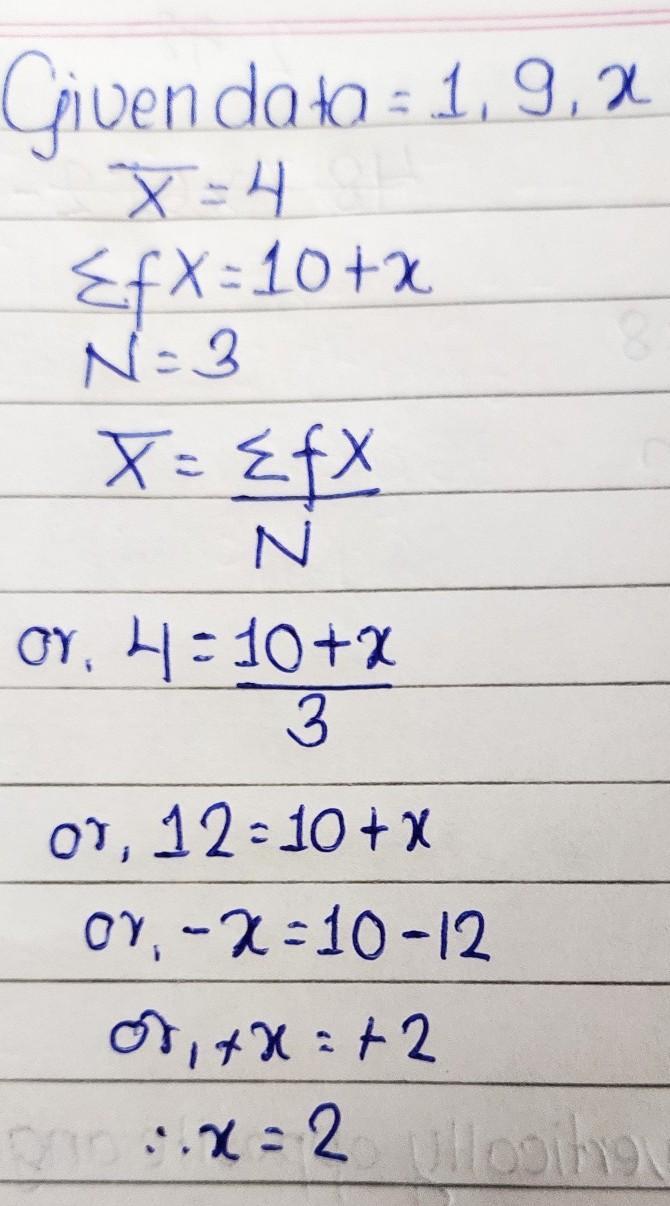 Given data = 1, 9, x
X̅ = 4
ΣfX = 10 + x
N = 3
X̅ = ΣfX
N
or, 4 = 10 + x
3
or, 12 = 10 + x
or, -x = 10 - 12
or, +x = +2
∴ x = 2